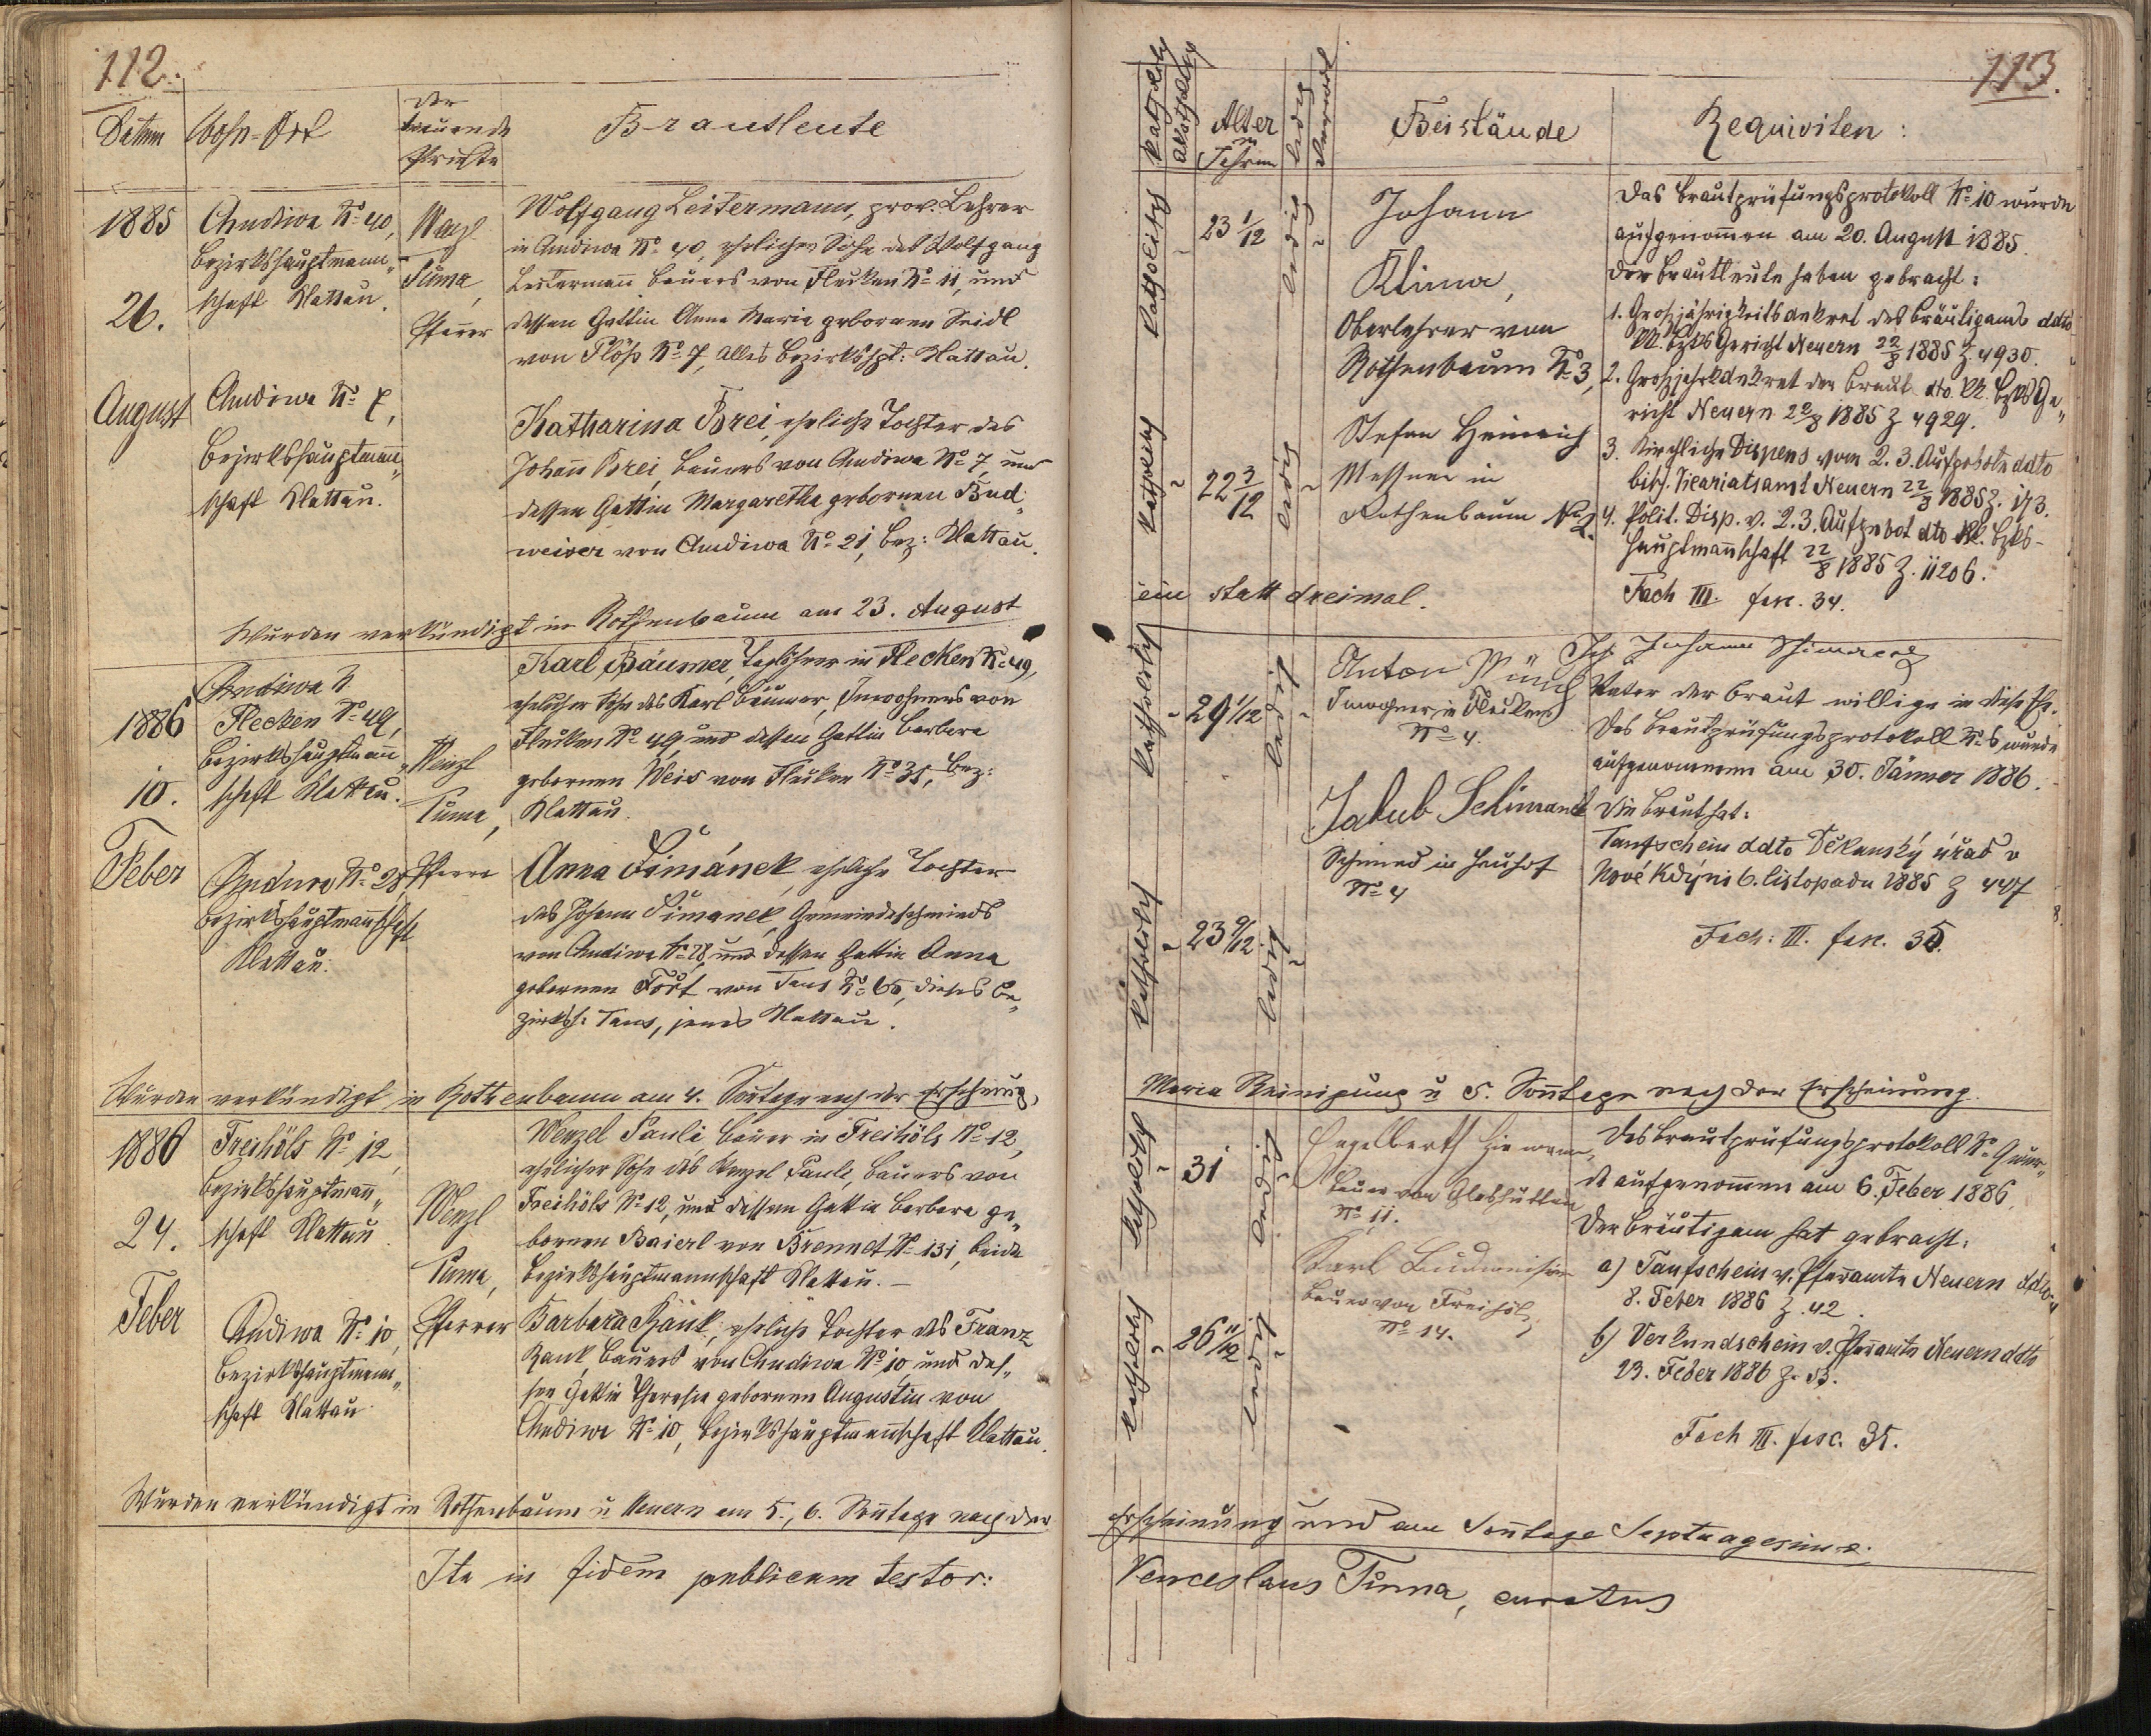 112.
Datum
Wohn-Ort
der
trauende
Priester
Brautleute
1885
26.
August
Chudiwa No 40,
Bezirkshauptmann„
schaft Klattau.
Chudiwa No 7,
Bezirkshauptmann„
schaft Klattau.
Wenzl
Tůma,
Pfarrer
Wolfgang Leitermann, prov. Lehrer
in Chudiwa No 40, ehelicher Sohn des Wolfgang
Leitermann Bauers von Flecken No 11, und
dessen Gattin Anna Maria gebornen Seidl
von Plöß No 7, alles Bezirkshpt: Klattau.
Katharina Brei, eheliche Tochter des
Johann Brei, Bauers von Chudiwa No 7, und
dessen Gattin Margaretha gebornen Bud„
weiser von Chudiwa No 21, Bez: Klattau.
Wurden verkündigt in Rothenbaum am 23. August
1886
10.
Feber
Chudiwa N
Flecken No 49,
Bezirkshauptmann„
schaft Klattau.
Chudiwa No 28,
Bezirkshauptmannschaft
Klattau.
Wenzl
Tůma,
Pfarrer
Karl Bäumer, Taglöhner in Flecken No 49,
ehelicher Sohn des Karl Bäumer, Inwohners von
Flecken No 49, und dessen Gattin Barbara
gebornen Weis von Flecken No 35, Bez:
Klattau.
Anna Šimánek, eheliche Tochter
des Johann Šimanek, Gemeindeschmieds
von Chudiwa No 28, und dessen Gattin Anna
gebornen Fořt von Taus No 60, dieses Be„
zirksh: Taus, jenes Klattau.
Wurden verkündigt in Rothenbaum am 4. Sonntage nach der Erscheinung,
1886
24.
Feber
Freihöls No 12,
Bezirkshauptmann„
schaft Klattau
Chudiwa No 10,
Bezirkshauptmann„
schaft Klattau
Wenzl
Tůma,
Pfarrer
Wenzel Pauli Bauer in Freihöls No 12,
ehelicher Sohn des Wenzel Pauli, Bauers von
Freihöls No 12, und dessen Gattin Barbara ge„
bornen Baierl von Brennet No 131, beide
Bezirkshauptmannschaft Klattau. –
Barbara Kauk, eheliche Tochter des Franz
Kauk, Bauers von Chudiwa No 10, und des„
sen Gattin Theresia gebornen Augustin von
Chudiwa No 10, Bezirkshauptmannschaft Klattau.
Wurden verkündigt in Rothenbaum u Neuern am 5., 6. Sonntage nach der
Ita in fidem publicam testor:
113.
katholisch
akatholisch
Alter
in
Jahren
ledig
verwit
Beistände
Requisiten:
katholisch
23 1/12
ledig
katholisch
22 3/12
ledig
Johann
Klima,
Oberlehrer von
Rothenbaum No 3,
Stefan Heinrich
Messner in
Rothenbaum No 2.
Das Brautprüfungsprotokoll No 10 wurde
aufgenommen am 20. August 1885.
Der Brautleute haben gebracht:
1. Großjährigkeitsdekret des Bräutigams ddto
kk. Bzks Gericht Neuern 22/8 1885 Z 4930.
2. Großjährkdekret der Braut dto kk. Bzks Ge„
richt Neuern 22/8 1885 Z 4929.
3. Kirchliche Dispens vom 2. 3. Aufgebote ddto
bisch. Vicariatsamt Neuern 22/8 1885 Z. 173.
4. Polit. Disp. v. 2. 3. Aufgebot dto kk. Bzks-
hauptmannschaft 22/8 1885 Z. 11206.
Fach III. fasc. 34.
ein statt dreimal.
katholisch
29 1/12
ledig
katholisch
23 9/12
ledig
Anton Münch
Inwohner in Flecken
No 4.
Jakub Schimanek
Schmied in
No 4
Ich Johann Schimanek
Vater der Braut willige in diese Ehe.
Das Brautprüfungsprotokoll No 6 wurde
aufgenommen am 30. Jänner 1886.
Die Braut hat:
Taufschein ddto Děkanský úřad v
Nové Kdyni 6. listopadu 1885 Z 447
Fach: III. fasc. 35.
Maria Reinigung u 5. Sonntage nach der Erscheinung.
katholisch
31
ledig
katholisch
26 11/12
ledig
Engelberth
Bauer von Glashütten
No 11.
Karl Budweiser
Bauer von Freihöls
No 14.
Das Brautprüfungsprotokoll No 9 wur„
de aufgenommen am 6. Feber 1886.
Der Bräutigam hat gebracht:
a) Taufschein v. Pfarramte Neuern ddto
8. Feber 1886 Z. 42.
b) Verkundschein v. Pfarramte Neuern ddto
23. Feber 1886 Z. 53.
Fach III. fasc. 35.
Erscheinung und am Sonntage Septuagesima.
Venceslaus Tůma, curatus